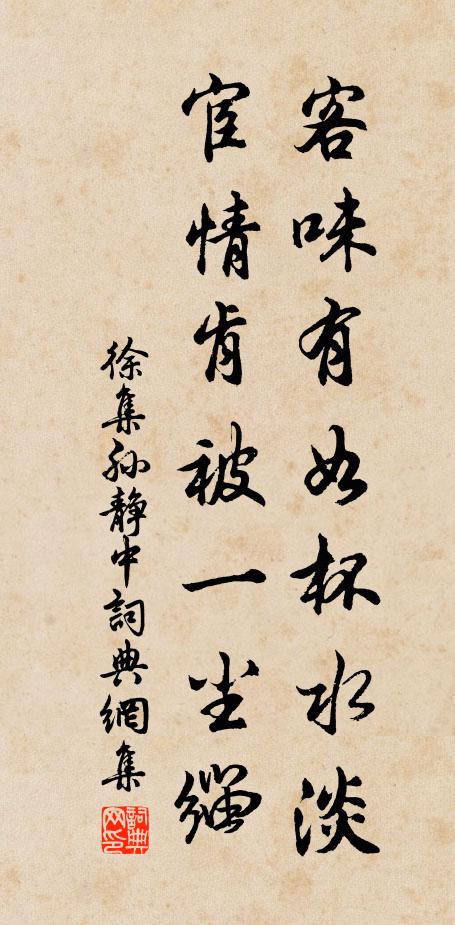 客味有如杯水淡
宦情肯被一尘緇
徐集孙静中詞典網集
詞典
网印